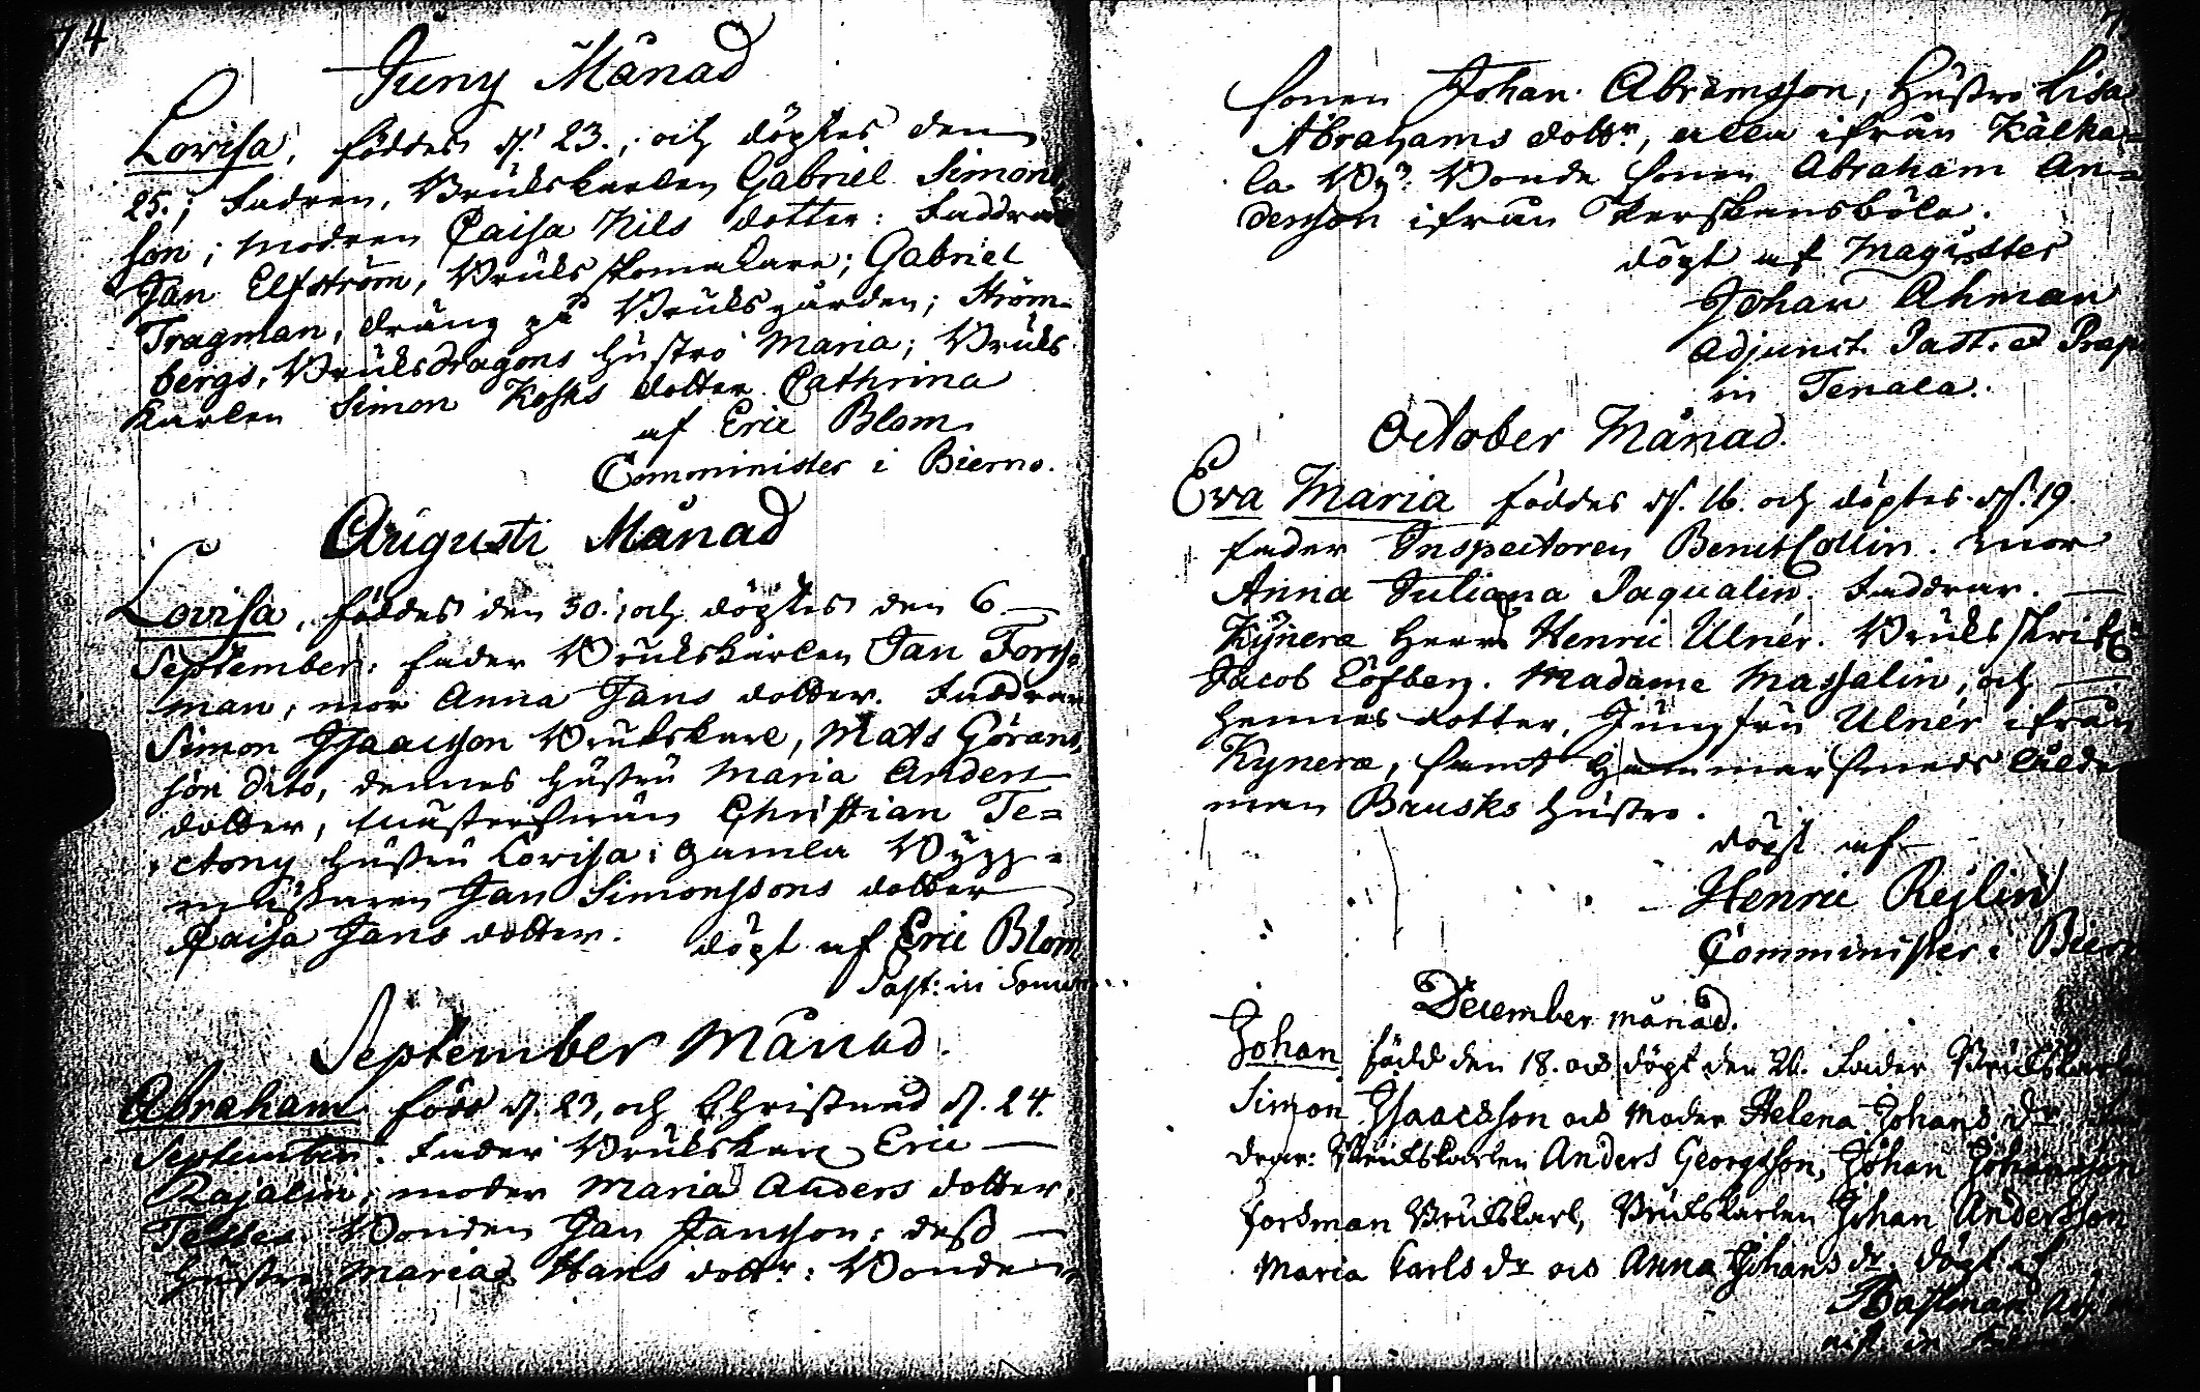 74
Juny Månad
Lovisa, föddes d. 23., och döptes den
25.; Fadren, Brukskarlen Gabriel Simons
son; modren Caisa Nils dotter: Faddrar
Jan Elfström, Bruks skomakare; Gabriel
Tragman, dräng på Bruksgården; Ström-
bergs, Bruksdragons hustro Maria; Bruks
karlen Simon Kosks dotter Cathrina
af Eric Blom
Comminister i Bierno.
Augusti Månad
Lovisa, föddes den 30., och döptes den 6
September: fader Brukskarlen Jan Forss-
man, mor Anna Jans dotter. Faddrar
Simon Isaacsson Brukskarl, Mats Görans
son dito, dennes hustru Maria Anders
dotter, Christian Te-
ctony hustru Lovisa; gamla Bygg-
mästaren Jan Simonssons dotter
Caisa Jans dotter. döpt af Eric Blom
Past: in
September Månad.
Abraham född d. 23, och Christnad d. 24.
September. Fader Brukskarl Eric
Rajalin, moder Maria Anders dotter,
Testes Bonden Jan Jansson; dess
hustro Maria Hans dottr: Bonde
sonen Johan Abramsson, hustro Lisa
Abrahams dottr, alla ifrån Kälka-
la By: Bonde sonen Abraham An-
dersson ifrån Perskansböle.
döpt af Magister
Johan Ahman
Adjunct. Past. et Præp
in Tenala.
October Månad.
Eva Maria föddes d. 16. och döptes d. 19.
fader Inspectoren Benct Collin. mor
Anna Juliana Paqualin. Faddrar.
Kynera Herr Henric Ulnér. Bruks skrif
Jacob Löfberg. Madame Massalin, och
hennes dotter, Jungfru Ulnér ifrån
Kynera, samt hammarsmeds ålder
man Brusks hustro.
döpt af
Henric Rejlin
Comminister i Biern
December månad.
Johan född den 18. och döpt den 26. Fader Brukskarlen
Simon Isaacsson och Moder Helena Johans dr.
drar: Brukskarlen Anders Georgsson, Johan Johansson
Forsman Brukskarl, Brukskarlen Johan Andersson
Maria Carls dr och Anna Johans dr. döpt af
Bastman Adj